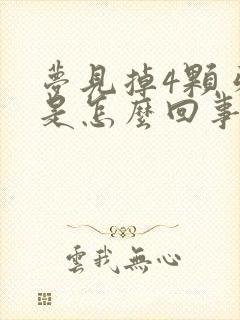 夢見掉4顆
是怎麼回事
雲我無心